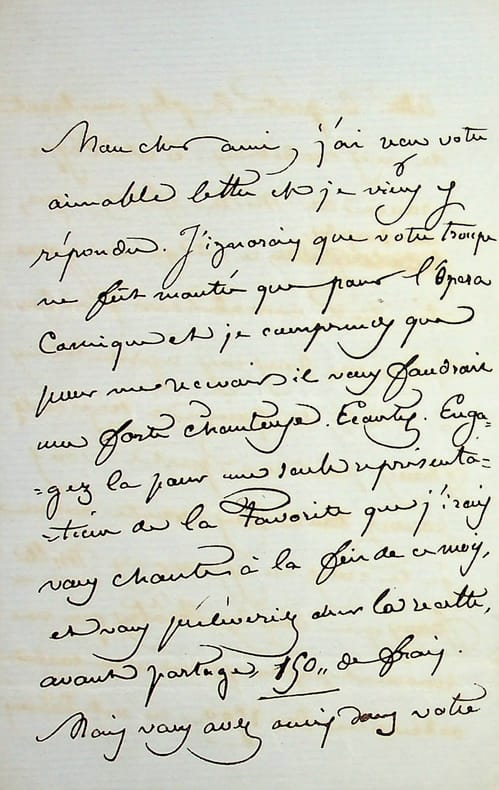 Mon cher ami, j'ai reçu votre
aimable lettre et je viens y
répondre. J'ignorais que votre troupe
ne fût montée que pour l'Opéra
Comique et je comprends que
pour me recevoir il vous faudrait
une forte chanteuse. Ecoutez. Enga=
=gez la pour une seule représenta=
=tion de la Favorite que j'irais
vous chanter à la fin de ce mois,
et vous prélèveriez sur la recette,
avant partage, 150,, de frais.
Mais vous avez aussi dans votre